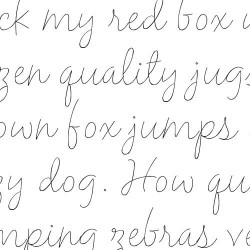 ck my red box w
zen quality jugs
own fox jumps
zy dog. How qu
mping zebras ve